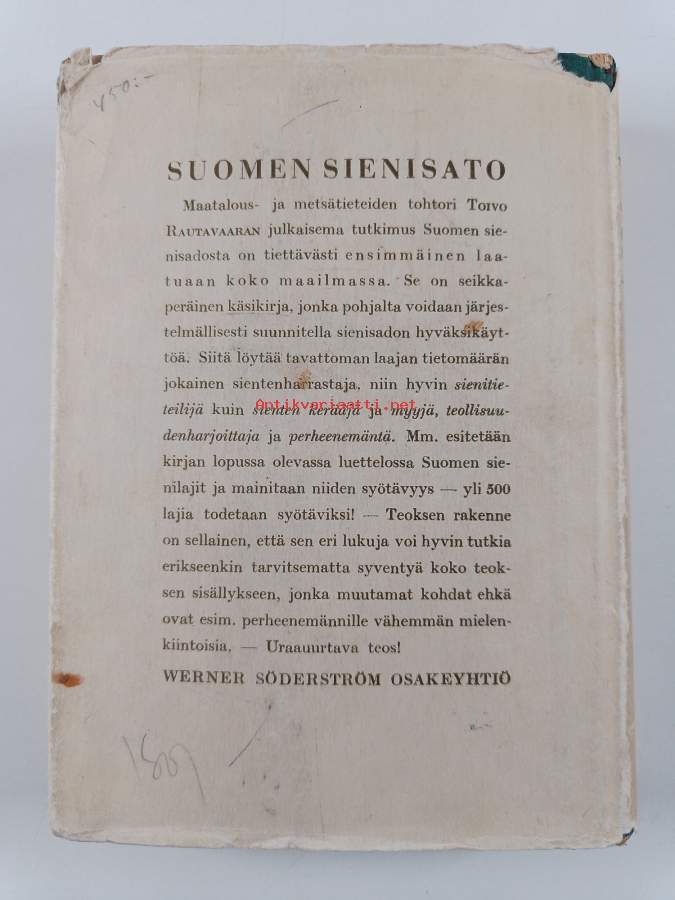 450:-
SUOMEN SIENISATO
Maatalous- ja metsätieteiden tohtori TOIVO
RAUTAVAARAN julkaisema tutkimus Suomen sie-
nisadosta on tiettävästi ensimmäinen laa-
tuaan koko maailmassa. Se on seikka-
peräinen käsikirja, jonka pohjalta voidaan järjes-
telmällisesti suunnitella sienisadon hyväksikäyt-
töä. Siitä löytää tavattoman laajan tietomäärän
jokainen sientenharrastaja, niin hyvin sienitie-
Antikvariaatti.net
teilijä kuin sienten kerääjä ja myyjä, teollisuu-
denharjoittaja ja perheenemäntä. Mm. esitetään
kirjan lopussa olevassa luettelossa Suomen sie-
nilajit ja mainitaan niiden syötävyys — yli 500
lajia todetaan syötäviksi! — Teoksen rakenne
on sellainen, että sen eri lukuja voi hyvin tutkia
erikseenkin tarvitsematta syventyä koko teok-
sen sisällykseen, jonka muutamat kohdat ehkä
ovat esim. perheenemännille vähemmän mielen-
kiintoisia. — Uraauurtava teos!
WERNER SÖDERSTRÖM OSAKEYHTIÖ